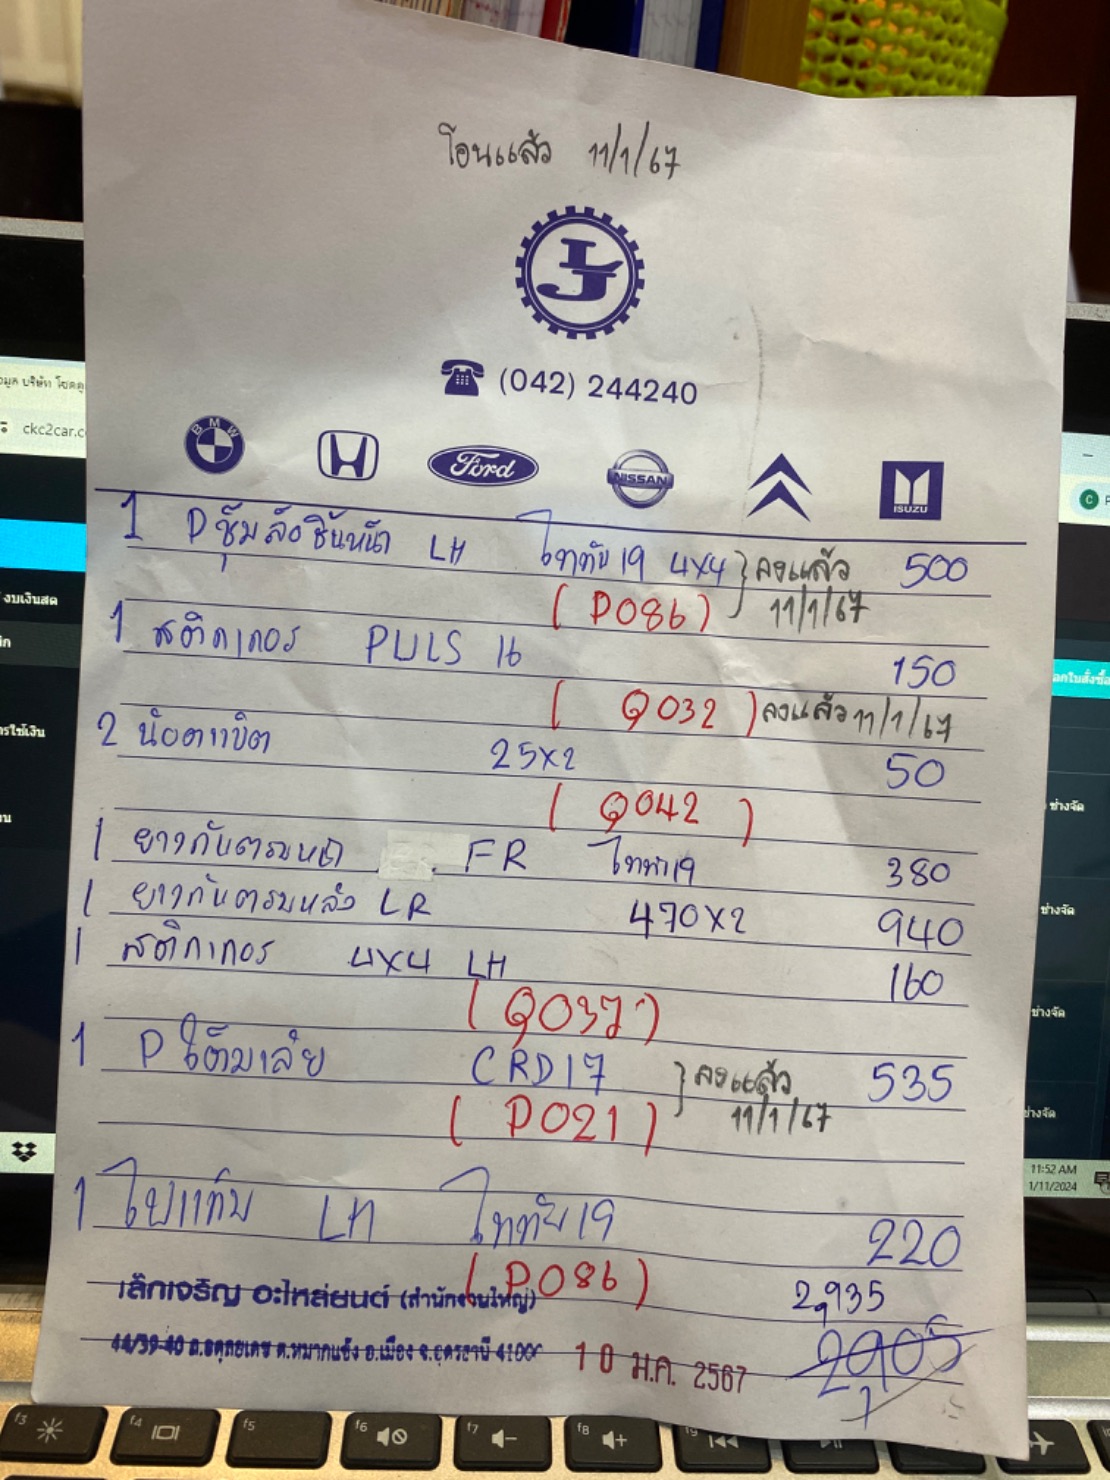 โอนแล้ว 11/1/67
LJ
(042) 244240
BMW
Ford
NISSAN
ISUZU
1 P ซุ้มล้อชิ้นหน้า LH ไททัน 19 4X4 } ลงแล้ว 500
(P086) 11/1/67
1 สติกเกอร์ PULS 16 150
(Q032) ลงแล้ว 11/1/67
2 น๊อต 25x2 50
(Q042)
1 ยางกันตรบหน้า FR ไททัน 19 380
1 ยางกันตรบหลัง LR 470x2 940
1 สติกเกอร์ 4x4 LH 160
(Q037)
1 P CRD17 } ลงแล้ว 535
(P021) 11/1/67
1 LH ไททัน 19 220
(P086)
เล็กเจริญ อะไหล่ยนต์ (สำนักงานใหญ่)
2,935
44/39-40 ถ.อดุลยเดช ต.หมากแข้ง อ.เมือง จ.อุดรธานี 41000
10 ม.ค. 2567
2,905
ckc2car.c
งบเงินสด
ช่างจัด
ช่างจัด
ช่างจัด
ช่างจัด
11:52 AM
1/11/2024
f3
f4
f5
f6
f7
f8